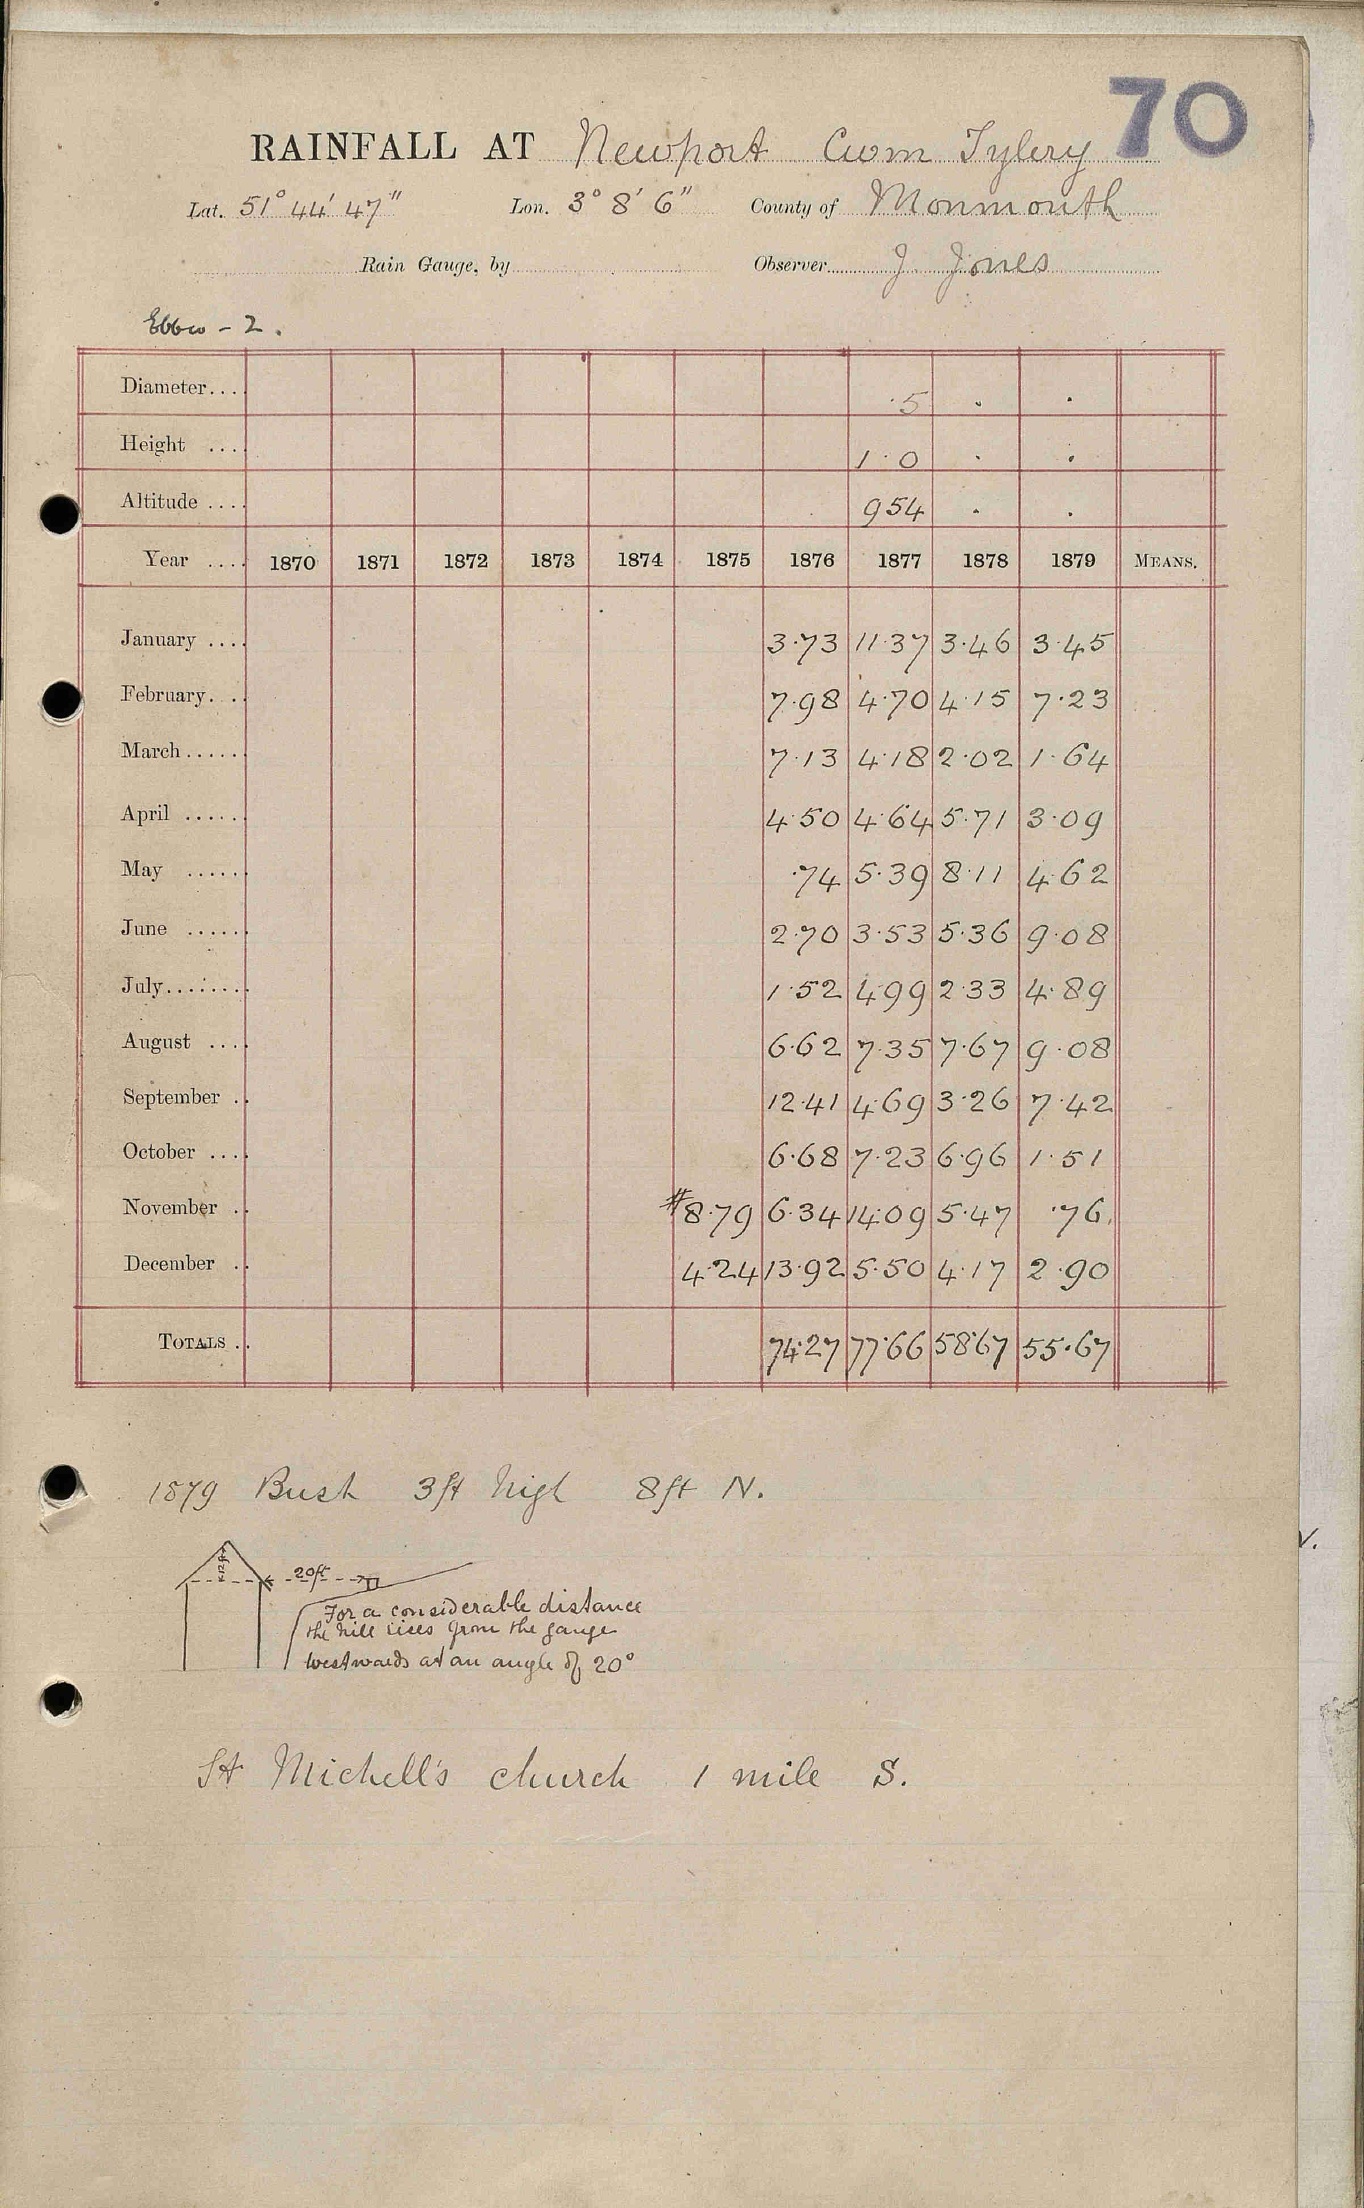 70
RAINFALL AT Newport Cwm Tylery
Lat. 51° 44' 47" Lon. 3° 8' 6" County of Monmouth
Rain Gauge, by Observer J Jones
Ebbw - 2.
Diameter.... ·5 . .
Height .... 1·0 . .
Altitude .... 954 . .
Year .... 1870 1871 1872 1873 1874 1875 1876 1877 1878 1879 MEANS.
January .... 3·73 11·37 3·46 3·45
February... 7·98 4·70 4·15 7·23
March...... 7·13 4·18 2·02 1·64
April ...... 4·50 4·64 5·71 3·09
May ...... ·74 5·39 8·11 4·62
June ...... 2·70 3·53 5·36 9·08
July........ 1·52 4·99 2·33 4·89
August .... 6·62 7·35 7·67 9·08
September .. 12·41 4·69 3·26 7·42
October .... 6·68 7·23 6·96 1·51
November .. #8·79 6·34 14·09 5·47 ·76
December .. 4·24 13·92 5·50 4·17 2·90
TOTALS .. 74·27 77·66 58·67 55·67
1879 Bush 3ft high 8ft N.
12ft
20ft
For a considerable distance
the hill rises from the gauge
westwards at an angle of 20°
St Michell's church 1 mile S.